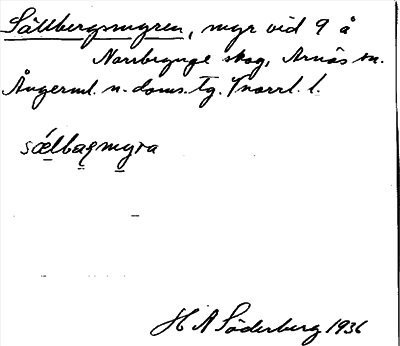 Sällbergsmyren, myr vid 9 å
Norrbygge skog, Arnäs sn.
Ångerml. n. doms. tg. Norrl. l.
sǽlbaṣmyra
H A Söderberg 1936